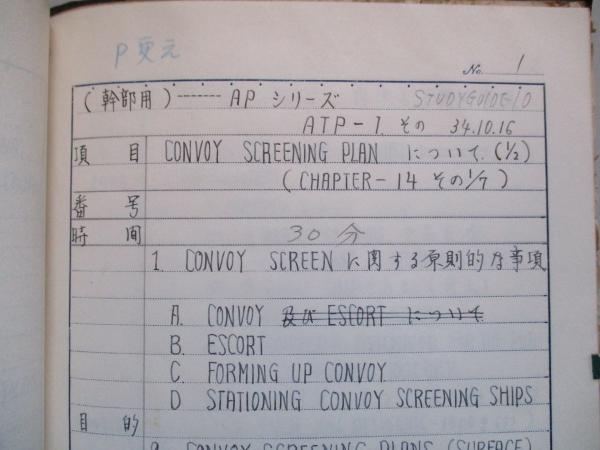 P更元
No. 1
(幹部用)------ APシリーズ STUDYGUIDE-10
ATP-1. その 34.10.16
項目 CONVOY SCREENING PLAN について.(1/2)
(CHAPTER-14 その1/7)
番号
時間 30分
1. CONVOY SCREEN に関する原則的な事項
A. CONVOY 及び ESCORT について
B. ESCORT
C. FORMING UP CONVOY
D STATIONING CONVOY SCREENING SHIPS
目的
2. CONVOY SCREENING PLANS (SURFACE)